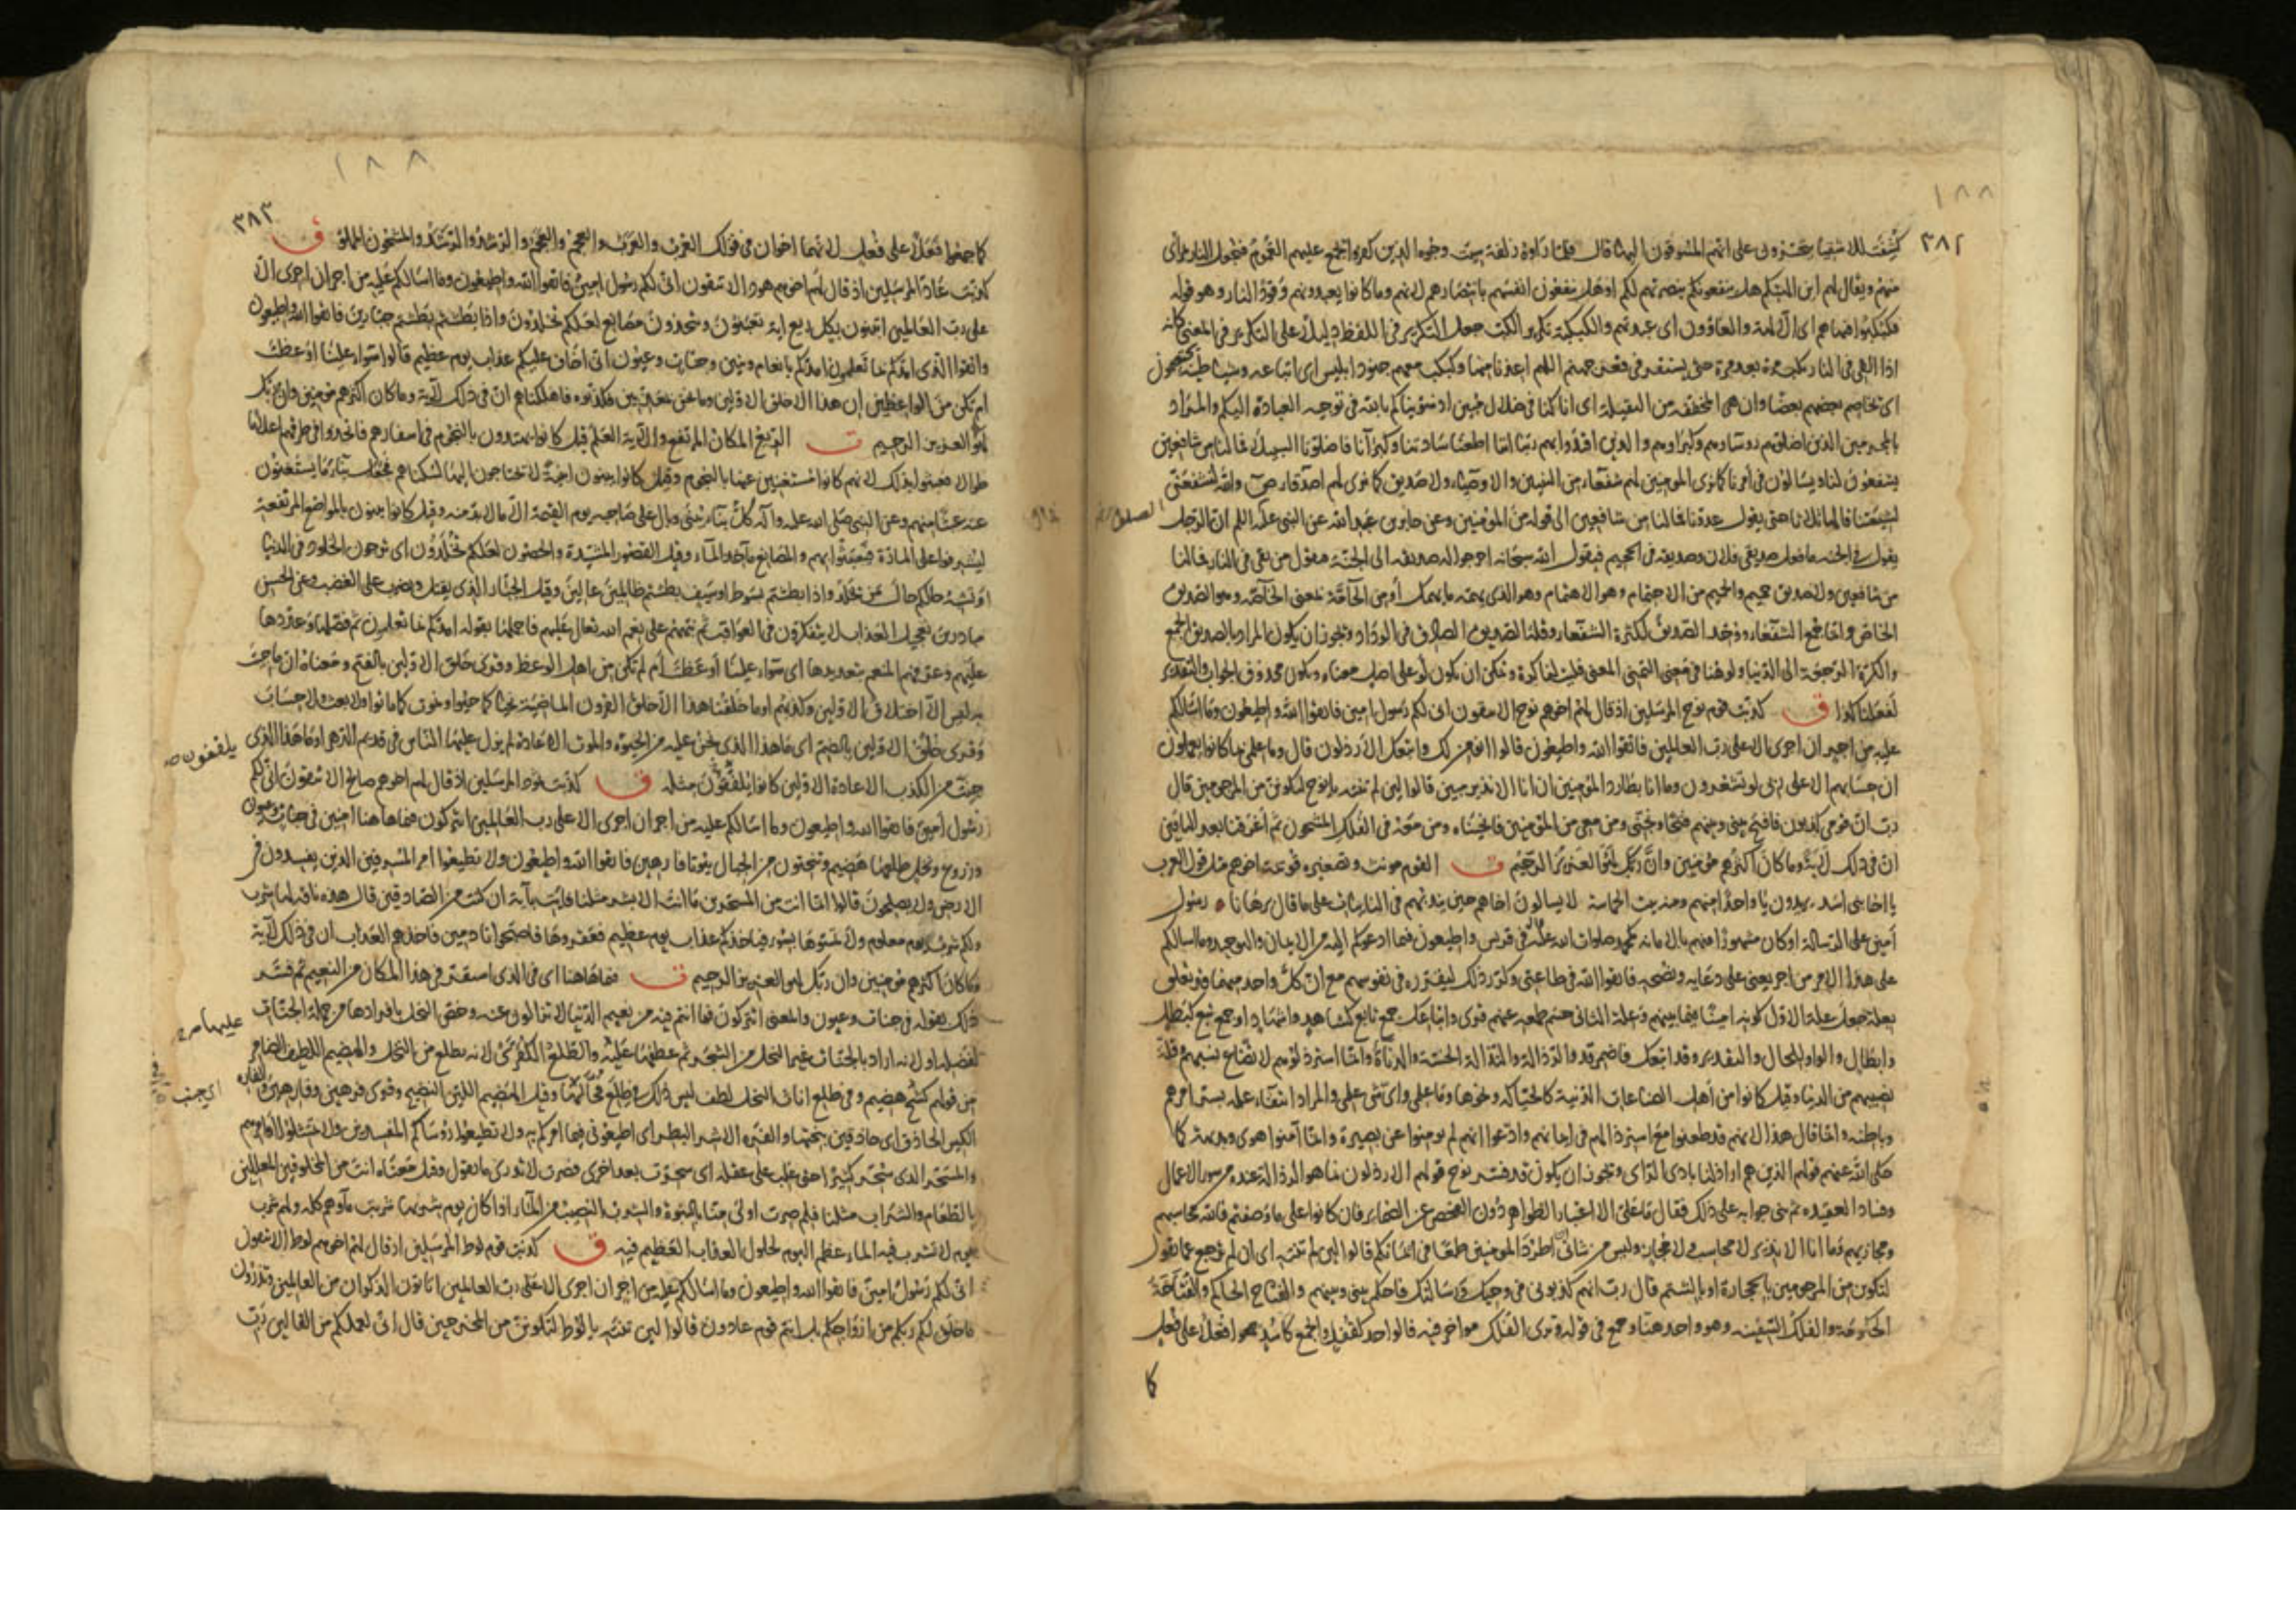 ١٨٨
٣٨٢
كُشِفَت للاشقيا يتحسّرون على انهم المسوقون اليها قال فلما راوه زلفة سيئت وجوه الذين كفروا يجمع عليهم الغموم فتجعل النار بمرأى
منهم ويقال لهم اين الهتكم هل ينفعونكم بنصرتهم لكم او هل ينفعون انفسهم بانتصارهم لانهم وما كانوا يعبدونهم وقود النار وهو قوله
فكبكبوا فيها هم اى الآلهة والغاوون اى عبدتهم والكبكبة تكرير الكب جعل التكرير فى اللفظ دليلا على التكرير فى المعنى كانه
اذا القى فى النار يكب مرة بعد مرة حتى يستقر فى قعر جهنم اللهم اعذنا منها وكبكب معهم جنود ابليس اى اتباعه وشياطينه يختصمون
اى تخاصم بعضهم بعضا وان هى المخففة من الثقيلة اى انا كنا فى ضلال مبين اذ سويناكم بالله فى توجيه العبادة اليكم والمراد
بالمجرمين الذين اضلوهم روساوهم وكبراوهم والذين اقتدوا بهم ربنا انا اطعنا سادتنا وكبرآنا فاضلونا السبيلا فما لنا من شافعين
يشفعون لنا ويسالون فى امرنا كما نرى المومنين لهم شفعاء من النبيين والاوصياء ولا صديق كما نرى لهم اصدقاء والله لنشفعن
لشيعتنا قالها ثلاثا حتى يقول عدونا فما لنا من شافعين الى قوله من المؤمنين وعن جابر بن عبد الله عن النبى عليه السلم ان الرجل
يقول فى الجنه ما فعل صديقى فلان وصديقه فى الجحيم فيقول الله سبحانه اخرجوا له صديقه الى الجنة فيقول من بقى فى النار فما لنا
من شافعين ولا صديق حميم والحميم من الاحتمام وهو الاهتمام وهو الذى يهمه ما يهمك او من الحآمّة بمعنى الخاصّه وهو الصديق
الخاص وانما جمع الشفعاء ووحد الصديق لكثرة الشفعاء وقلة الصديق الصادق فى الوداد ويجوز ان يكون المراد بالصديق الجمع
والكرّة الرجعة الى الدنيا ولو هنا فى معنى التمنى المعنى فليت لنا كرة ويمكن ان يكون لو على اصل معناه ويكون محذوف الجواب والتقدير
لفعلنا كذا ق كذبت قوم نوح المرسلين اذ قال لهم اخوهم نوح الا تتقون انى لكم رسول امين فاتقوا الله واطيعون وما اسالكم
عليه من اجر ان اجرى الا على رب العالمين فاتقوا الله واطيعون قالوا انومن لك واتبعك الارذلون قال وما علمى بما كانوا يعملون
ان حسابهم الا على ربى لو تشعرون وما انا بطارد المؤمنين ان انا الا نذير مبين قالوا لئن لم تنته يا نوح لتكونن من المرجومين قال
رب ان قومى كذبون فافتح بينى وبينهم فتحا ونجنى ومن معى من المؤمنين فانجيناه ومن معه فى الفلك المشحون ثم اغرقنا بعد الباقين
ان فى ذلك لآية وما كان اكثرهم مؤمنين وان ربك لهو العزيز الرحيم ت القوم مونث وتصغيره قويمة اخوهم مثل قول العرب
يا اخا بنى اسد يريدون يا واحدا منهم ومنه بيت الحماسة لا يسالون اخاهم حين يندبهم فى النائبات على ما قال برهانا رسول
أمين على الرسالة او كان مشهورا منهم بالامانه كمحمد صلوات الله عليه وآله فى قريش واطيعون فيما ادعوكم اليه من الايمان والتوحيد وما اسالكم
على هذا الامر من اجر يعنى على دعايه ونصحه فاتقوا الله فى طاعتى وكرر ذلك ليقرره فى نفوسهم مع ان كل واحد منهما
بعلة جعل علة الاول كونه امينا فيما بينهم وعلة الثانى حسم طمعه عنهم قرى واتباعك جمع تابع كشاهد واشهاد او جمع تبع كبطل
وابطال والواو للحال والتقدير وقد اتبعك فاضمر قد والرذالة والنذالة الخسّة والدناءة وانما استرذلوهم لاتضاع نسبهم وقلة
نصيبهم من الدنيا وقيل كانوا من أهل الصناعات الدنية كالحياكه ونحوها وما علمى واى شى علمى والمراد انتفاء علمه بسر امرهم
وباطنه وانما قال هذا لانهم قد طعنوا مع استرذالهم فى ايمانهم وادّعوا انهم لم يومنوا عن بصيرة وانما آمنوا هوى وبديهة كما
حكى الله عنهم قولهم الذين هم اراذلنا بادى الراى ويجوز ان يكون قد فسر نوح قولهم الارذلون بما هو الرذالة عنده من سوء الاعمال
وفساد العقيده ثم بنى جوابه على ذلك فقال ما علىّ الا اعتبار الظواهر دون الفحص عن الضمائر فان كانوا على ما وصفتم فالله محاسبهم
ومجازيهم وما انا الا نذير لا محاسب ولا مجاز وليس من شانى ان اطرد المومنين طمعا فى ايمانكم قالوا لئن لم تنته اى ان لم ترجع عما تقول
لتكونن من المرجومين بالحجارة او بالشتم قال رب انهم كذبونى فى وحيك ورسالتك فاحكم بينى وبينهم والفتاح الحاكم والفُتاحة
الحكومة والفلك السفينه وهو واحد هنا وجمع فى قوله وترى الفلك مواخر فيه فالواحد كقفل والجمع كاسد جمعوا افعُلا على فُعل
كا
١٨٨
٣٨٣
كما جمعوا فَعَلا على فُعل لانهما اخوان فى قولك العُرب والعَرب والعُجم والعَجم والرُشد والرَشد والمشحون المملو ق
كذبت عاد المرسلين اذ قال لهم اخوهم هود الا تتقون انى لكم رسول امين فاتقوا الله واطيعون وما اسالكم عليه من اجر ان اجرى الا
على رب العالمين اتبنون بكل ريع اية تعبثون وتتخذون مصانع لعلكم تخلدون واذا بطشتم بطشتم جبارين فاتقوا الله واطيعون
واتقوا الذى امدّكم بما تعلمون امدكم بانعام وبنين وجنات وعيون انى اخاف عليكم عذاب يوم عظيم قالوا سواء علينا اوعظت
ام لم تكن من الواعظين ان هذا الا خلق الاولين وما نحن بمعذبين فكذبوه فاهلكناهم ان فى ذلك لآية وما كان اكثرهم مومنين وان ربك
لهو العزيز الرحيم ت الريع المكان المرتفع والآية العلم قيل كانوا يهتدون بالنجوم فى اسفارهم فاتخذوا فى طرقهم اعلاما
طوالا فعبثوا بذلك لانهم كانوا مستغنين عنها بالنجوم وقيل كانوا يبنون ابنية لا يحتاجون اليها لسكناهم فجعل بناء ما يستغنون
عنه عبثا منهم وعن النبى صلى الله عليه وآله كل بناء يبنى وبال على صاحبه يوم القيمة الا ما لا بد منه وقيل كانوا يبنون بالمواضع المرتفعة
ليشرفوا على المارّة فيعبثوا بهم والمصانع مآخذ المآء وقيل القصور المشيّدة والحصون لعلكم تخلدون اى ترجون الخلود فى الدنيا
او تشبه حالكم حال من يخلد واذا بطشتم بسوط او سيف بطشتم ظالمين عالين وقيل الجبّار الذى يقتل ويضرب على الغضب وعن الحسن
مبادرين تعجيل العذاب لا يتفكرون فى العواقب ثم نبههم على نعم الله تعالى عليهم فاجملها بقوله امدكم بما تعلمون ثم فصّلها وعدّدها
عليهم وعرفهم المنعم بتعديدها اى سواء علينا أوعظت أم لم تكن من اهل الوعظ وقرى خَلق الاولين بالفتح ومعناه ان ما جئت
به ليس الا اختلاق الاولين وكذبهم او ما خلقنا هذا الا خلق القرون الماضية نحيا كما حيوا ونموت كما ماتوا ولا بعث ولا حساب
وقرى خُلُق الاولين بالضم اى ما هذا الذى نحن عليه من الحيوة والموت الا عادة لم يزل عليها الناس فى قديم الدهر او ما هذا الذى
جئت من الكذب الا عادة الاولين كانوا يلفقون مثله ق كذبت ثمود المرسلين اذ قال لهم اخوهم صالح الا تتقون انى لكم
رسول أمين فاتقوا الله واطيعون وما اسالكم عليه من اجر ان اجرى الا على رب العالمين اتتركون فيما هاهنا امنين فى جنات وعيون
وزروع ونخل طلعها هضيم وتنحتون من الجبال بيوتا فارهين فاتقوا الله واطيعون ولا تطيعوا امر المسرفين الذين يفسدون فى
الارض ولا يصلحون قالوا انما انت من المسحرين ما انت الا بشر مثلنا فات بآية ان كنت من الصادقين قال هذه ناقة لها شرب
ولكم شرب يوم معلوم ولا تمسوها بسوء فياخذكم عذاب يوم عظيم فعقروها فاصبحوا نادمين فاخذهم العذاب ان فى ذلك لآية
وما كان اكثرهم مومنين وان ربك لهو العزيز الرحيم ت فيما هاهنا اى فى الذى استقر فى هذا المكان من النعيم ثم فسّر
ذلك بقوله فى جنات وعيون والمعنى اتتركون فيما انتم فيه من نعيم الدنيا لا تزالون عنه وخصّ النخل بافرادها من جملة الجنات
لفضله او لانه اراد بالجنات غيرها من الشجر ثم عطفها عليه والطلع الكفرى لانه يطلع من النخل والهضيم اللطيف الضامر
من قولهم كشح هضيم وفى طلع اناث النخل لطف ليس ذلك فى طلع فحّالها وقيل الهضيم اللين النضيج وقرى فرهين وفارهين والفاره
الكيس الحاذق اى حاذقين بنحتها والفَرِه الاشر البطر اى اطيعونى فيما امركم به ولا تطيعوا رؤساكم المفسدين ولا تمتثلوا اوامرهم
والمسحّر الذى سُحّر كثيرا حتى غلب على عقله اى سحرت بعد اخرى فصرت لا تدرى ما تقول وقيل معناه انت من المخلوقين المعللين
بالطعام والشراب مثلنا فلم صرت اولى منا بالنبوة والشرب النصيب من المآء اذا كان يوم شربها شربت ماءهم كله ولهم شرب
يوم لا تشرب فيه الماء عظم اليوم لحلول العذاب العظيم فيه ق كذبت قوم لوط المرسلين اذ قال لهم اخوهم لوط الا تتقون
انى لكم رسول امين فاتقوا الله واطيعون وما اسالكم عليه من اجر ان اجرى الا على رب العالمين اتاتون الذكران من العالمين وتذرون
ما خلق لكم ربكم من ازواجكم بل انتم قوم عادون قالوا لئن لم تنته يا لوط لتكونن من المخرجين قال انى لعملكم من القالين رب
يلفقون